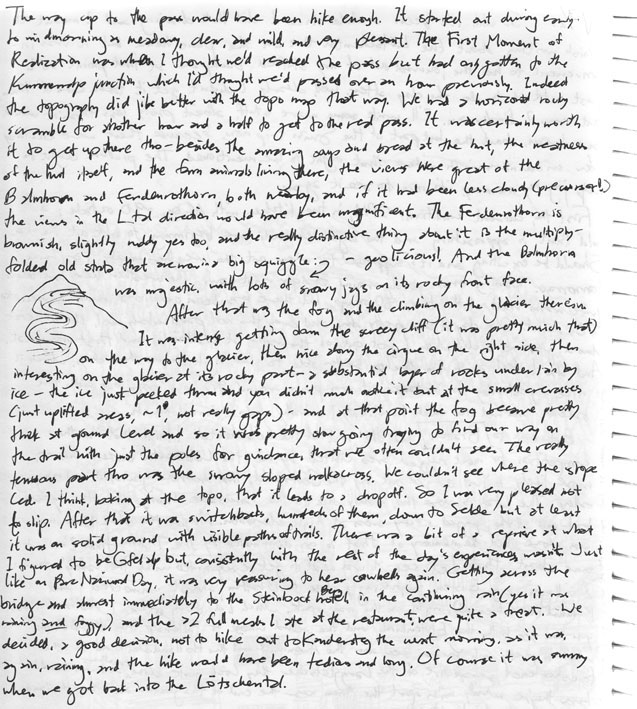 The way up to the pass would have been hike enough. It started out during early
to midmorning as meadowy, clear, and mild, and very pleasant. The First Moment of
Realization was when I thought we'd reached the pass but had only gotten to the
junction, which I'd thought we'd passed over an hour previously. Indeed
the topography did jibe better with the topo map that way. We had a horizontal rocky
scramble for another hour and a half to get to the real pass. It was certainly worth
it to get up there tho - besides the amazing and bread at the hut, the neatness
of the hut itself, and the farm animals living there, the views were great of the
Balmhorn and Ferdenrothorn, both nearby, and if it had been less cloudy
the views in the L tal direction would have been magnificent. The Ferdenrothorn is
brownish, slightly ruddy yes too, and the really distinctive thing about it is the multiply-
folded old strata that are now in a big squiggle: - geolicious! And the Balmhorn
was majestic with lots of snowy jags on its rocky front face.
After that was the fog and the climbing on the glacier thereon.
It was intense getting down the screey cliff (it was pretty much that)
on the way to the glacier, then nice along the cirque on the right side, then
interesting on the glacier at its rocky part - a substantial layer of rocks underlain by
ice - the ice just peeked thru and you didn't much notice it but at the small crevasses
(just uplifted areas, ~1', not really gaps) - and at that point the fog became pretty
thick at ground level and so it was pretty slow going trying to find our way on
the trail with just the poles for guidance, that we often couldn't see. The really
tenuous part tho was the snowy sloped walkacross. We couldn't see where the slope
led. I think, looking at the topo, that it leads to a dropoff. So I was very pleased not
to slip. After that it was switchbacks, hundreds of them, down to Selde but at least
it was on solid ground with visible paths of trails. There was a bit of a reprise at what
I figured to be Gfelalp but, consistently with the rest of the day's experiences, wasn't. Just
like on Day, it was very reassuring to hear cowbells again. Getting across the
bridge and almost immediately to the Steinbock in the continuing rain (yes it was
raining and foggy), and the ~2 full meals I ate at the restaurant, were quite a treat. We
decided, a good decision, not to hike out to Kandersteg the next morning, as it was,
again, raining, and the hike would have been tedious and long. Of course it was sunny
when we got back into the Lötschental.